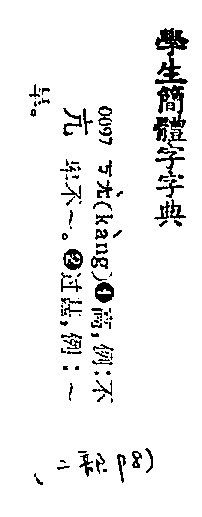 學生簡體字字典
0097 ㄎㄤˋ(kàng)❶高,例:不
亢 卑不~。❷过甚,例:~
旱。